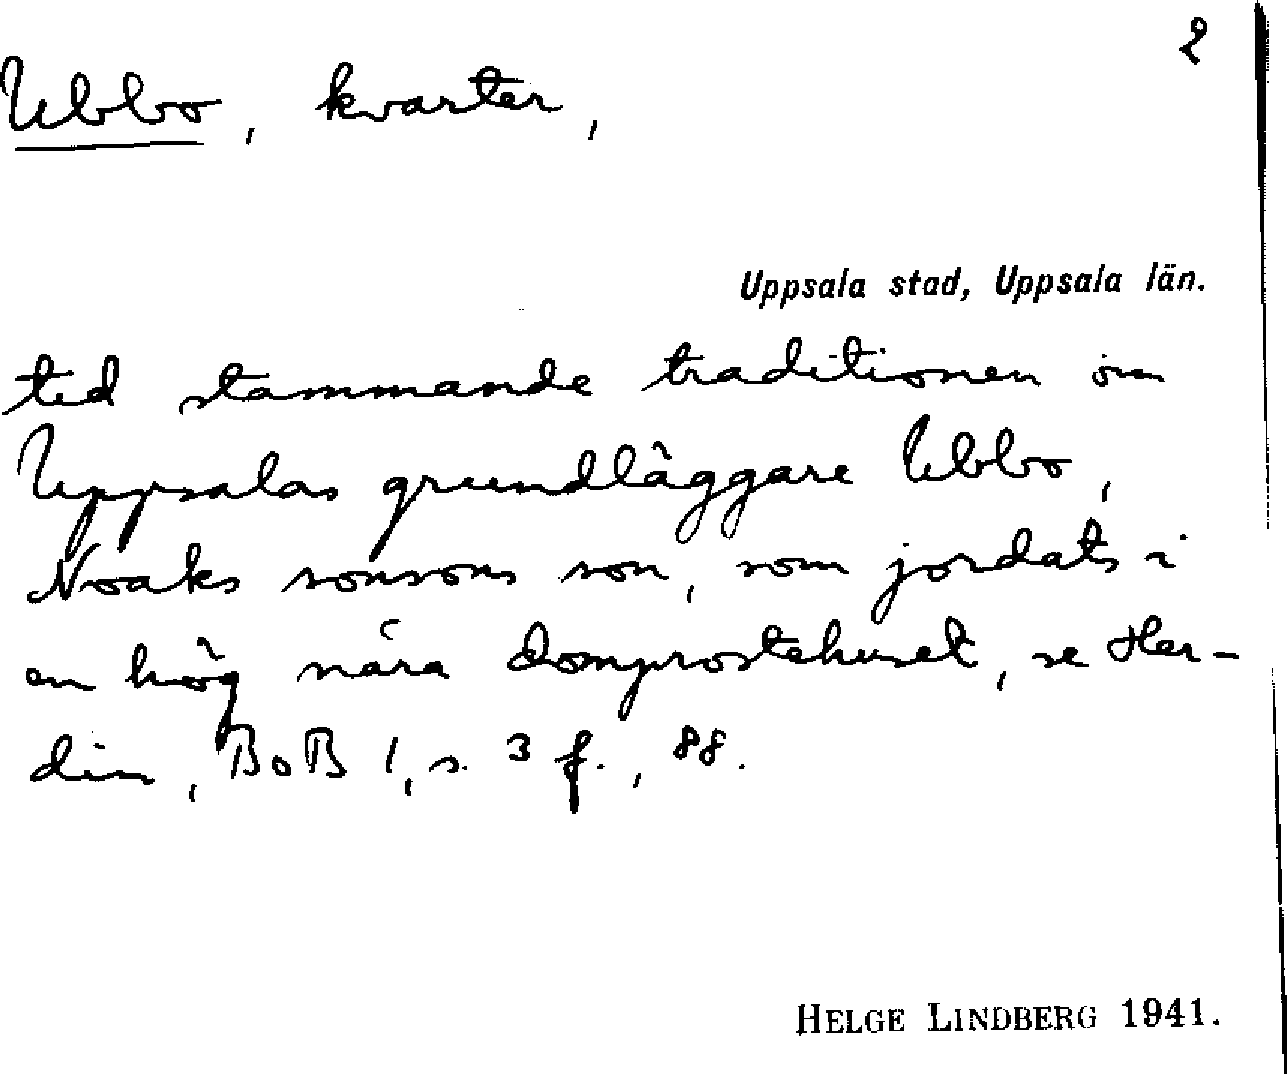 2
Ubbo, kvarter,
Uppsala stad, Uppsala län.
tid stammande traditionen om
Uppsalas grundläggare Ubbo,
Noaks sonsons son, som jordats i
en hög nära domprostehuset, se Her-
din, BoB 1, s. 3 f., 88.
HELGE LINDBERG 1941.